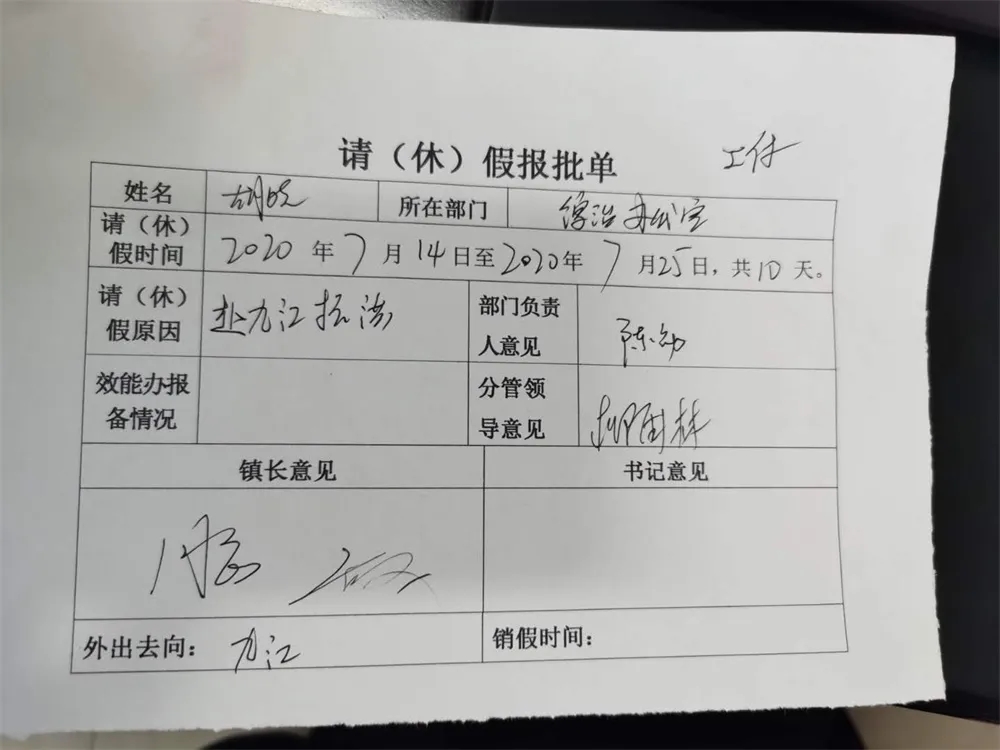 请（休）假报批单 工休
姓名 胡晓 所在部门 综治办公室
请（休）假时间 2020年7月14日至2020年7月25日，共10天。
请（休）假原因 赴九江抗洪 部门负责人意见
效能办报备情况 分管领导意见
镇长意见 书记意见
外出去向：九江 销假时间：